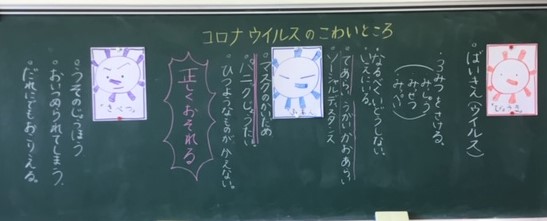 コロナウイルスのこわいところ
・ばいきん(ウイルス)
・3みつをさける。
・なるべくいどうしない。
いえにいる。
・てあらい、うがい、かおあらい
・ソーシャルディスタンス
・マスクのかいだめ
・パニックじょうたい
・ひつようなものがかえない。
正しくおそれる
・うそのじょうほう
・おいつめられてしまう。
・だれにでもおこりえる。